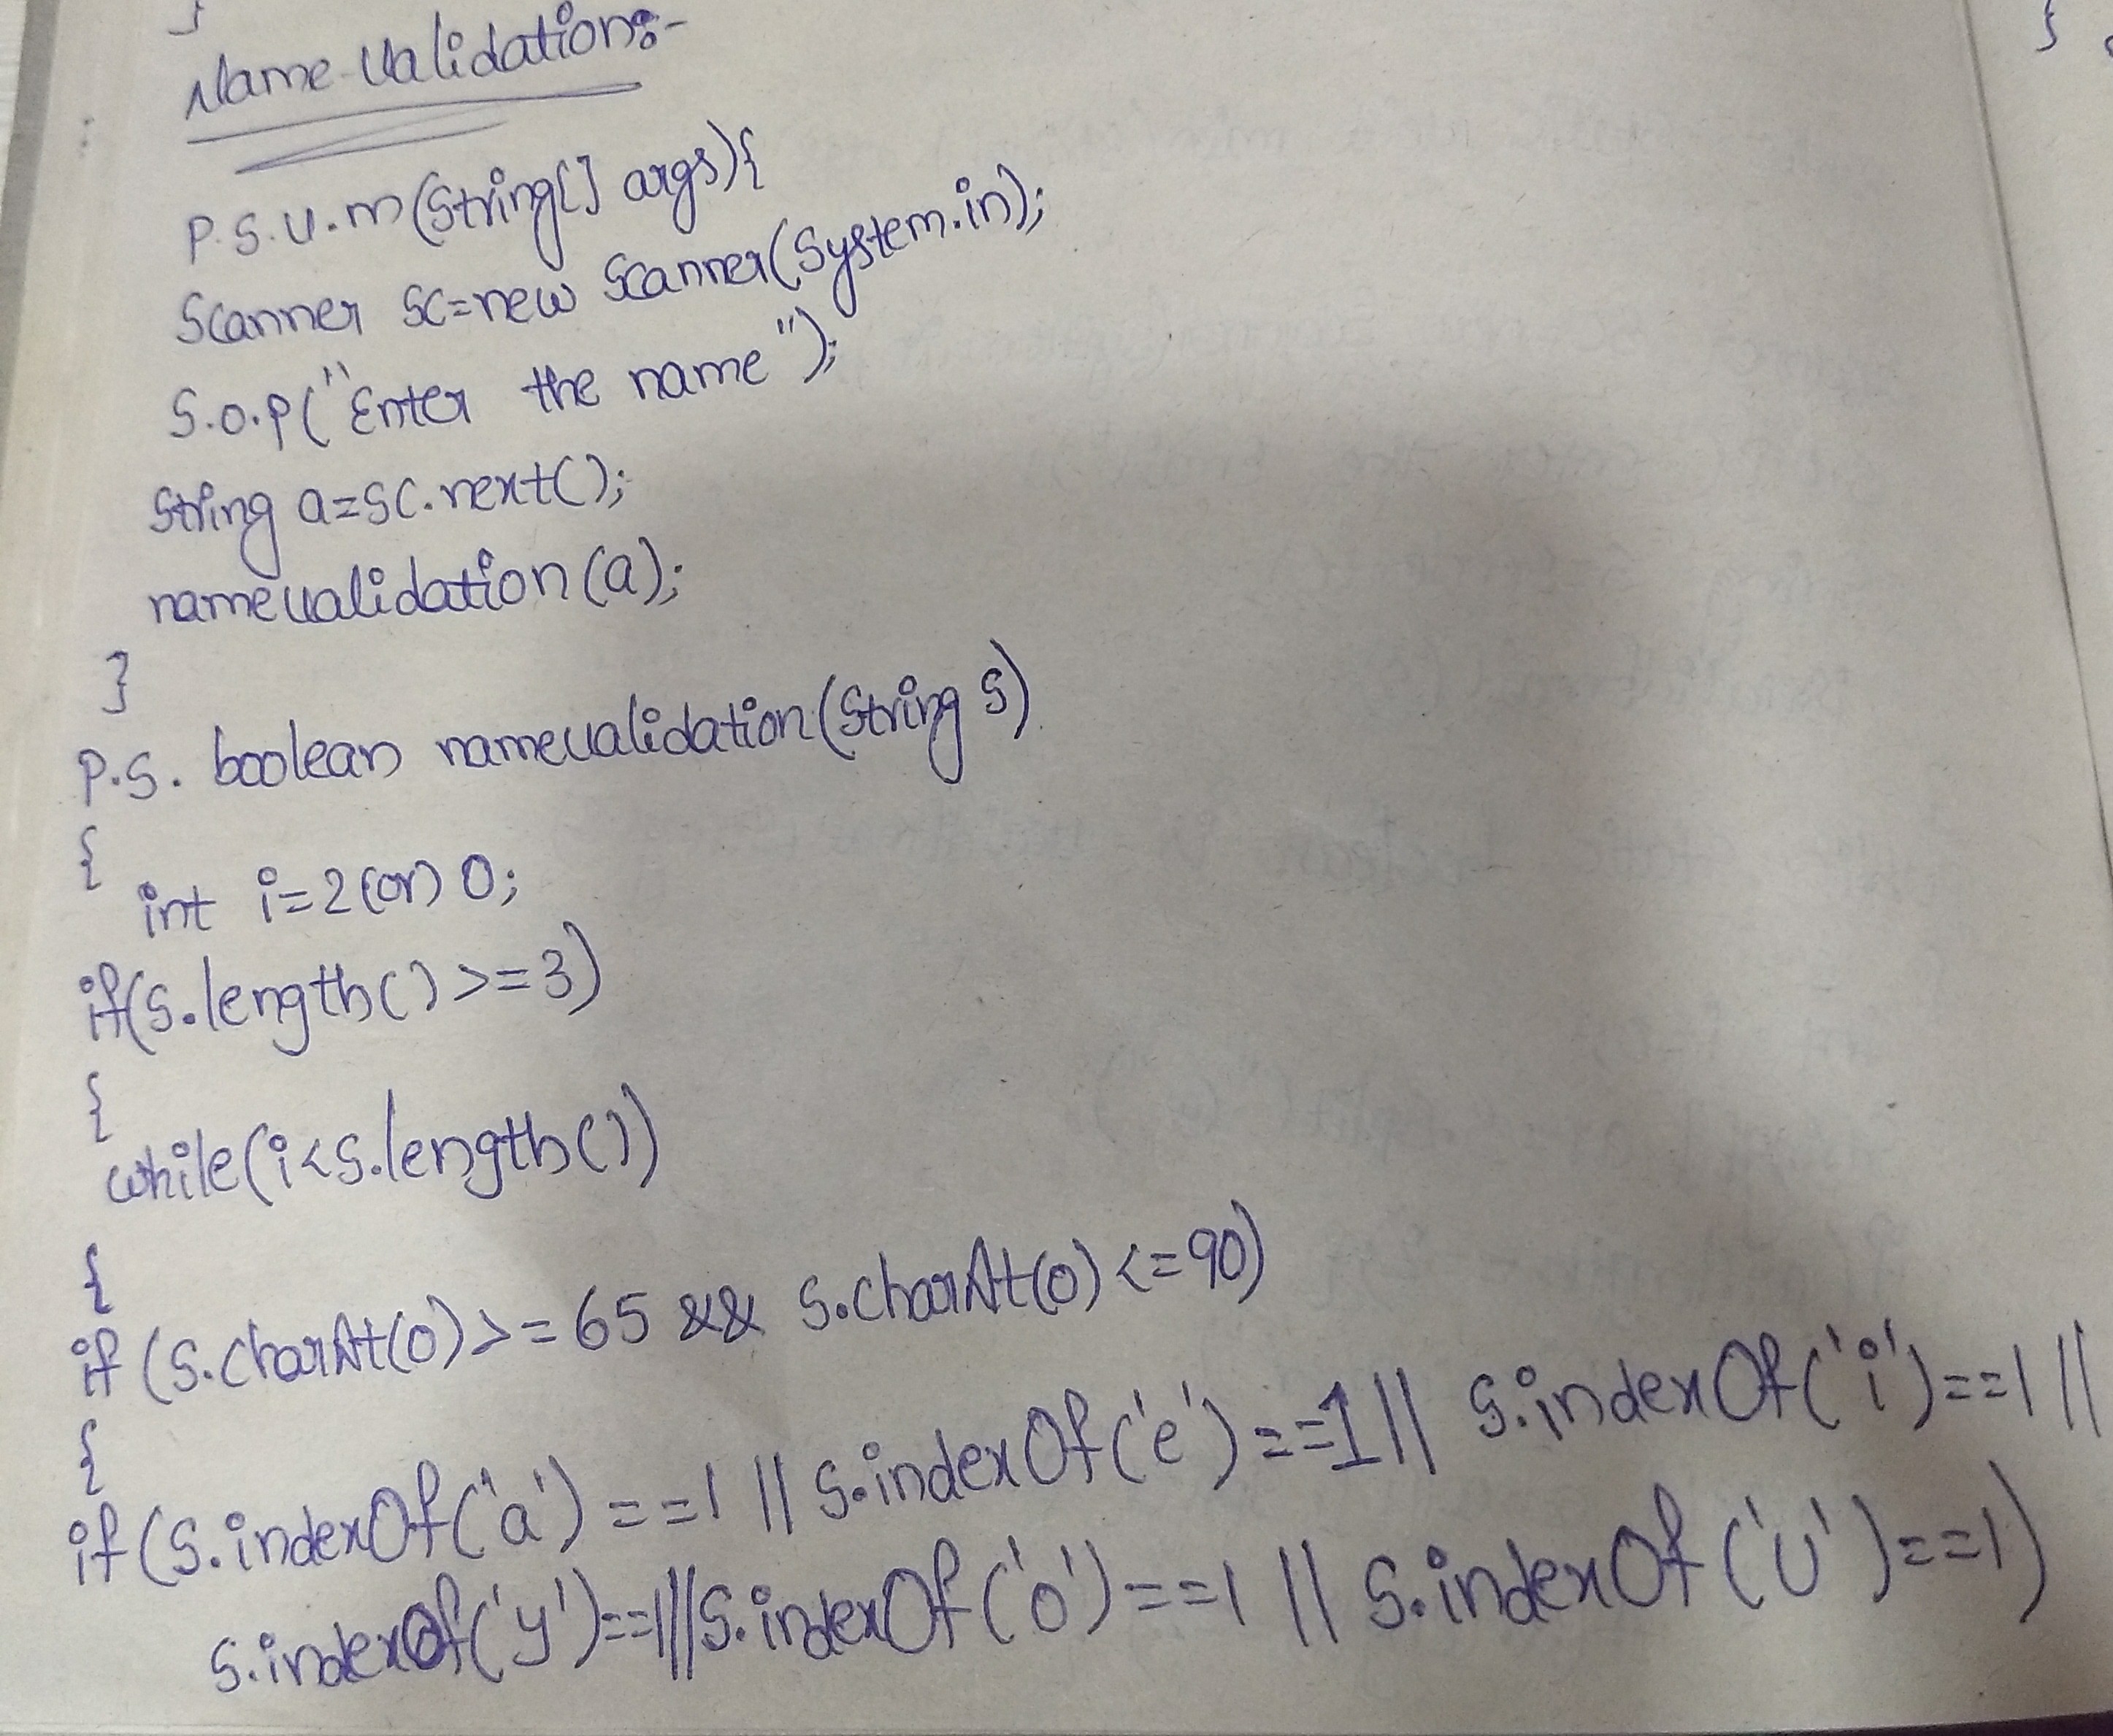 }
Name Validation:-
P.S.V.m(String[] args){
Scanner sc=new Scanner(System.in);
S.o.p("Enter the name");
String a=sc.next();
namevalidation(a);
}
P.S. boolean namevalidation(String s)
{
int i=2(or) 0;
if(s.length()>=3)
{
while(i<s.length())
{
if(s.charAt(0)>=65 && s.charAt(0)<=90)
{
if(s.indexOf('a')==1 || s.indexOf('e')==1 || s.indexOf('i')==1 ||
s.indexOf('y')==1||s.indexOf('o')==1 || s.indexOf('u')==1)
}